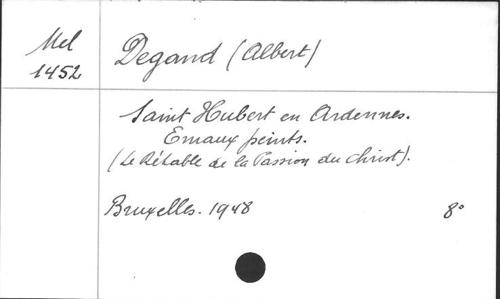 Mel
1452
Degand (Albert)
Saint Hubert en Ardennes.
Emaux peints.
(Le Rétable de la Passion du Christ).
Bruxelles. 1948
8°